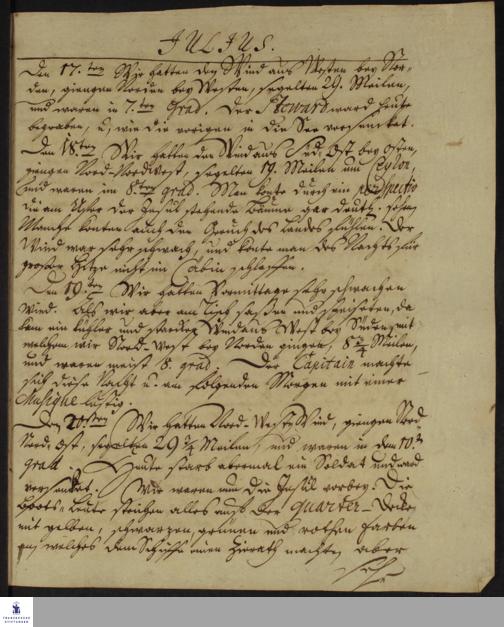 JULIUS.
Den 17.ten Wir hatten den Wind aus Westen bey Nor-
den, giengen Norden bey Westen, segelten 29. Meilen,
und waren in 7.ten Grad. Der Steward ward heute
begraben, u, wie die vorigen in die See versencket.
Den 18.ten Wir hatten den Wind aus Süd-Ost bey Osten,
giengen Nord-Nordwest, segelten 19. Meilen um Ceylon
und waren im 8.ten grad. Man konte durch ein perspectiv
die am Ufer der Insul stehende Bäume gar deutl. sehen
Manche konten auch den Geruch des Landes fühlen. Der
Wind war sehr schwach, und konte man des Nachts für
grosser Hitze nicht im Cabin schlaffen.
Den 19.ten Wir hatten Vormittags sehr schwachen
Wind. Als wir aber am Tisch sassen und speiseten, da
kam ein kühler und starcker Wind aus West bey Süden, mit
welchem wir Nord-West bey Norden gingen, 8 Meilen,
und waren meist 8. grad. Der Capitain machte
sich diese Nacht u. am folgenden Morgen mit einer
Musique lustig.
Den 20.sten Wir hatten Nord-West Wind, giengen Nord
Nord-Ost, segelten 29 3/4 Meilen, und waren in dem 10.t
grad. Heute starb abermal ein Soldat und ward
versencket. Wir waren nun die Insul vorbey. Die
Boots-Leute strichen alles auf der Quarter-Decke
mit gelben, schwarzen, grünen und rothen Farben
an, welches dem Schiffe einen Zierath machte, aber
FRANCKESCHE
STIFTUNGEN